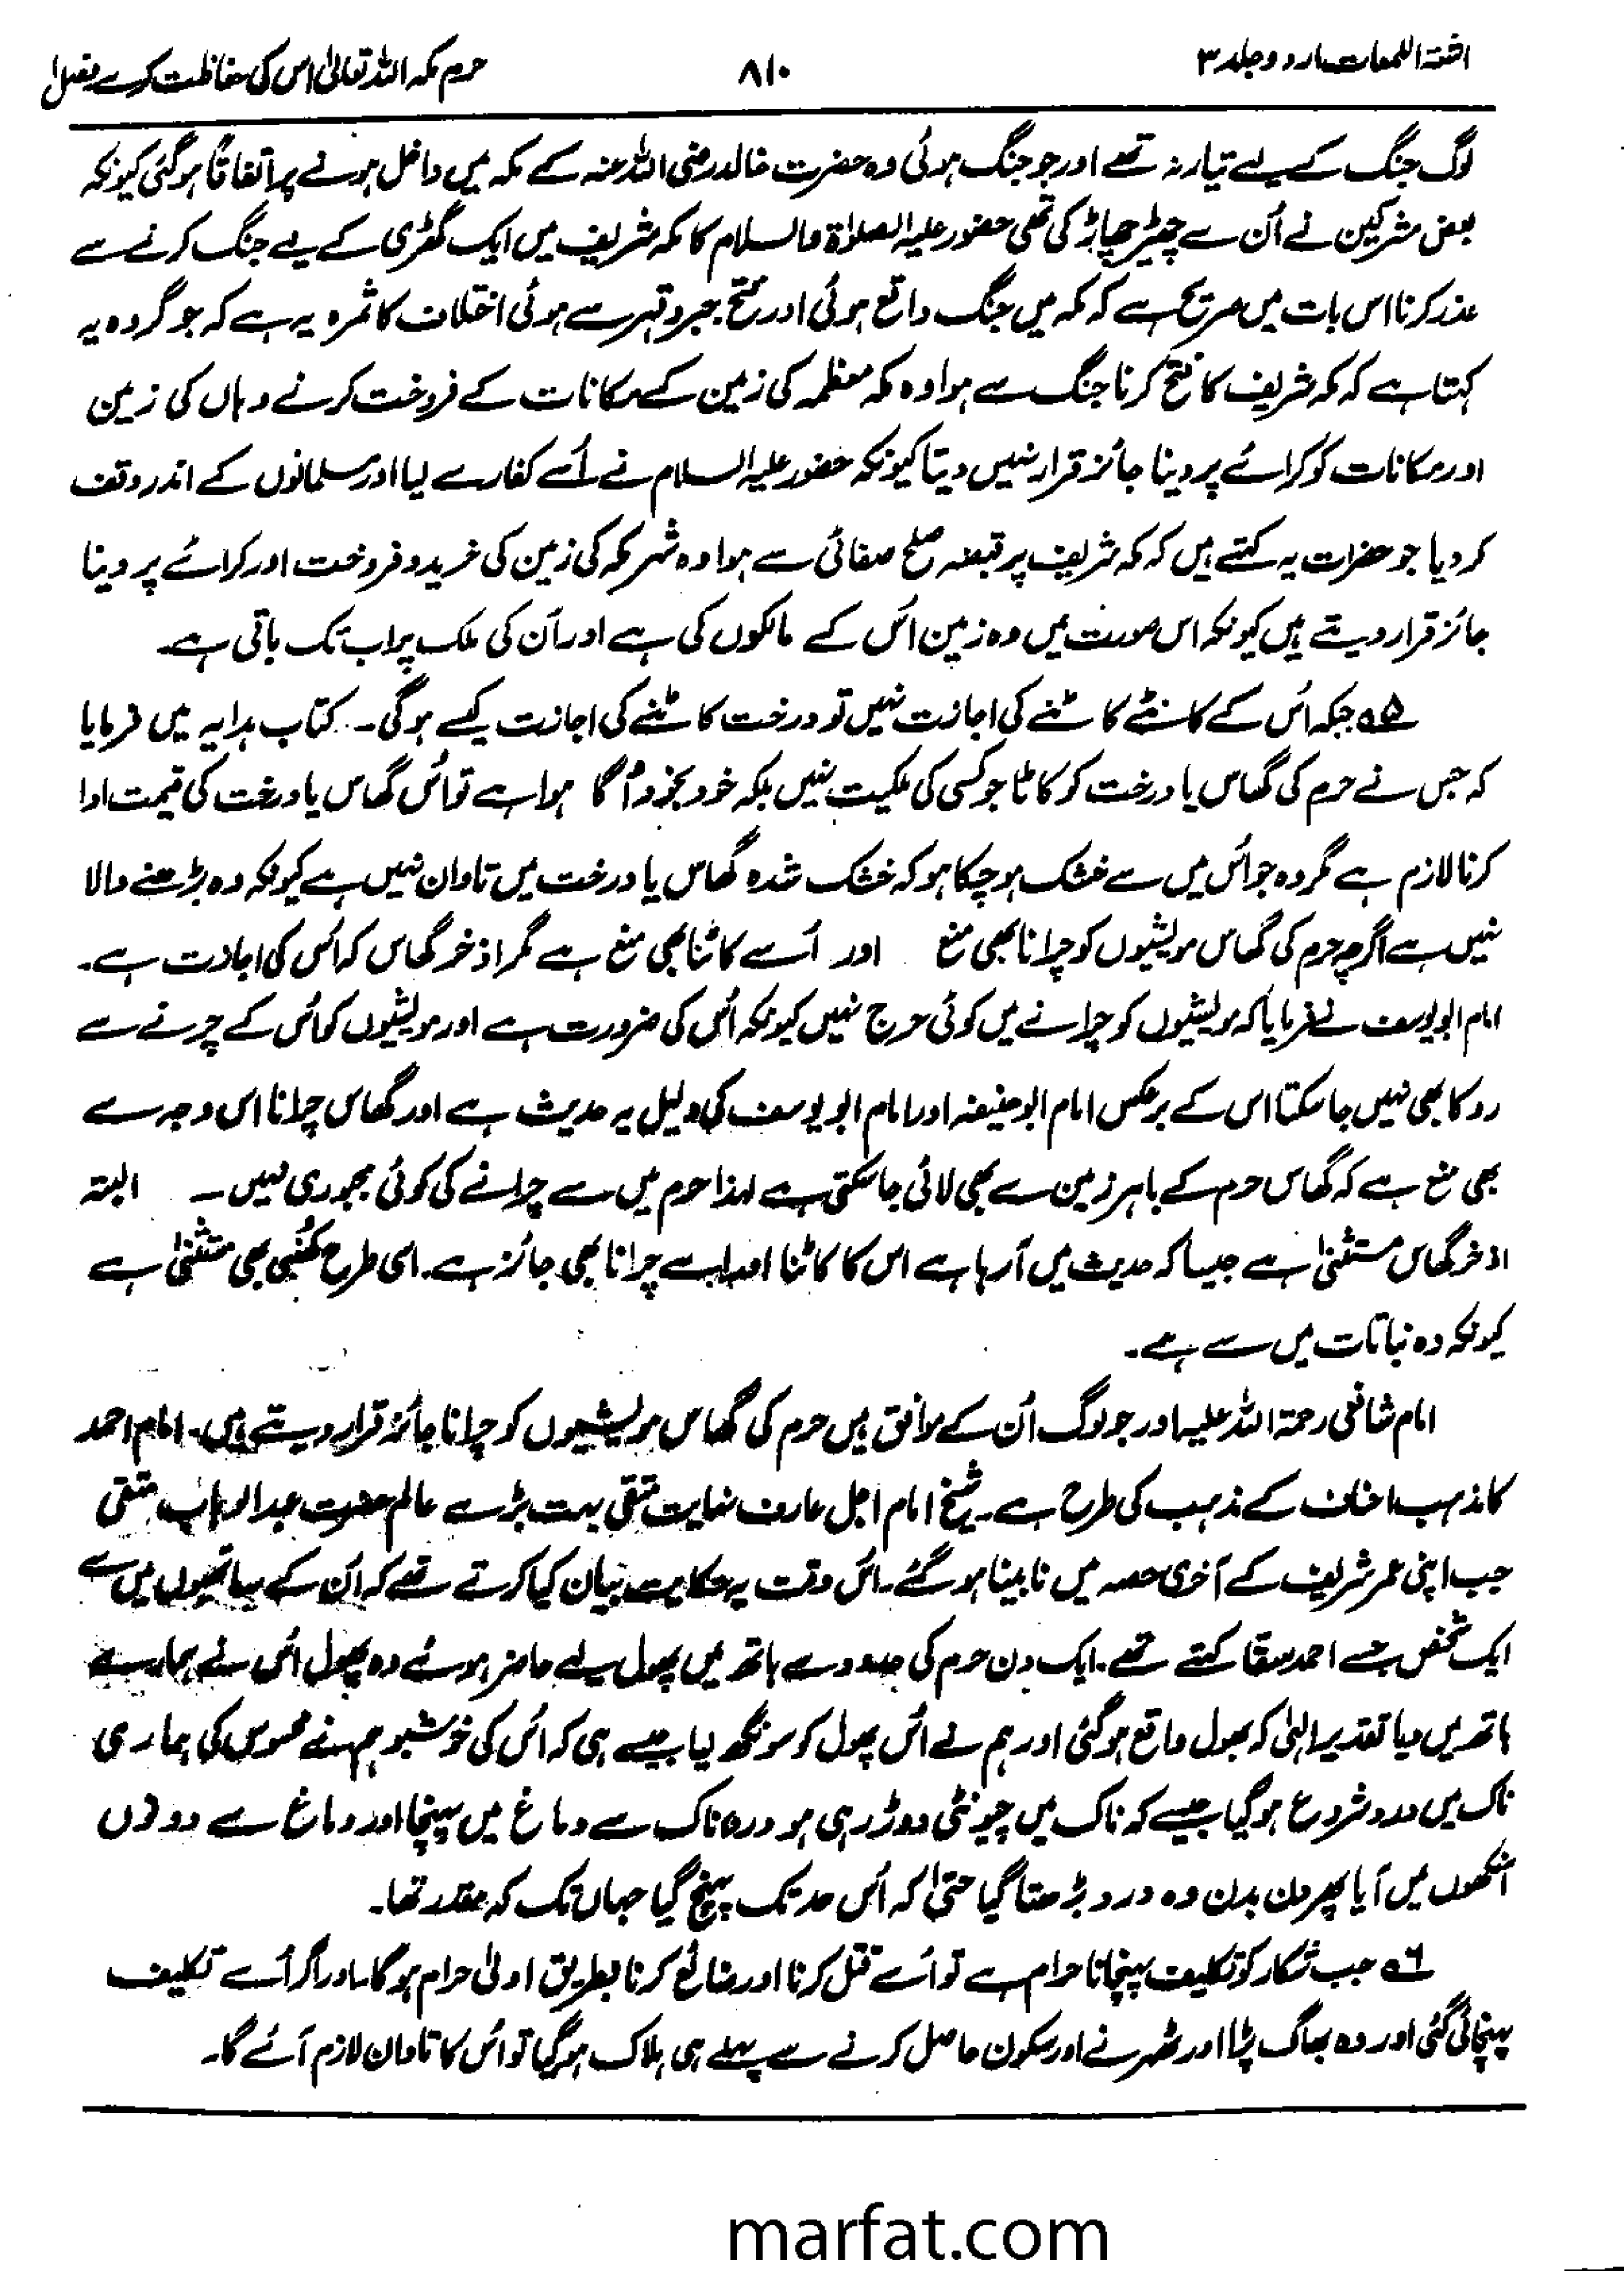 اشعۃ اللمعات اردو جلد ۳
۸۱۰
حرم مکہ اللہ تعالیٰ اس کی حفاظت کرے فصل۱
لوگ جنگ کے لیے تیار نہ تھے اور جو جنگ ہوئی وہ حضرت خالد رضی اللہ عنہ کے مکہ میں داخل ہونے پر اتفاقاً ہوگئی کیونکہ
بعض مشرکین نے اُن سے چھیڑ چھاڑ کی تھی حضور علیہ الصلوٰۃ والسلام کا مکہ شریف میں ایک گھڑی کے لیے جنگ کرنے سے
عذر کرنا اس بات میں صریح ہے کہ مکہ میں جنگ واقع ہوئی اور فتح جبر و قہر سے ہوئی اختلاف کا ثمرہ یہ ہے کہ جو گروہ یہ
کہتا ہے کہ مکہ شریف کا فتح کرنا جنگ سے ہوا وہ مکہ معظمہ کی زمین کے مکانات کے فروخت کرنے وہاں کی زمین
اور مکانات کو کرائے پر دینا جائز قرار نہیں دیتا کیونکہ حضور علیہ السلام نے اُسے کفار سے لیا اور مسلمانوں کے اندر وقف
کر دیا جو حضرات یہ کہتے ہیں کہ مکہ شریف پر قبضہ صلح صفائی سے ہوا وہ شہر مکہ کی زمین کی خرید و فروخت اور کرائے پر دینا
جائز قرار دیتے ہیں کیونکہ اس صورت میں وہ زمین اُس کے مالکوں کی ہے اور اُن کی ملک پر اب تک باقی ہے۔
۵؎ جبکہ اُس کے کانٹے کاٹنے کی اجازت نہیں تو درخت کاٹنے کی اجازت کیسے ہوگی۔ کتاب ہدایہ میں فرمایا
کہ جس نے حرم کی گھاس یا درخت کو کاٹا جو کسی کی ملکیت نہیں بلکہ خود بخود اُگا ہوا ہے تو اُس گھاس یا درخت کی قیمت ادا
کرنا لازم ہے مگر وہ جو اُس میں سے خشک ہو چکا ہو کہ خشک شدہ گھاس یا درخت میں تاوان نہیں ہے کیونکہ وہ بڑھنے والا
نہیں ہے اگرچہ حرم کی گھاس مویشیوں کو چرانا بھی منع اور اُسے کاٹنا بھی منع ہے مگر اذخر گھاس کہ اُس کی اجازت ہے۔
امام ابویوسف نے فرمایا کہ مویشیوں کو چرانے میں کوئی حرج نہیں کیونکہ اُس کی ضرورت ہے اور مویشیوں کو اُس کے چرنے سے
روکا بھی نہیں جا سکتا اس کے برعکس امام ابوحنیفہ اور امام ابویوسف کی دلیل یہ حدیث ہے اور گھاس چرانا اس وجہ سے
بھی منع ہے کہ گھاس حرم کے باہر زمین سے بھی لائی جا سکتی ہے لہذا حرم میں سے چرانے کی کوئی مجبوری نہیں۔ البتہ
اذخر گھاس مستثنیٰ ہے جیسا کہ حدیث میں آ رہا ہے اس کا کاٹنا اور اسے چرانا بھی جائز ہے۔ اسی طرح کھُنبی بھی مستثنیٰ ہے
کیونکہ وہ نباتات میں سے ہے۔
امام شافعی رحمۃ اللہ علیہ اور جو لوگ اُن کے موافق ہیں حرم کی گھاس مویشیوں کو چرانا جائز قرار دیتے ہیں۔ امام احمد
کا مذہب احناف کے مذہب کی طرح ہے۔ شیخ امام اجل عارف نہایت متقی بہت بڑے عالم حضرت عبدالوہاب متقی
جب اپنی عمر شریف کے آخری حصہ میں نابینا ہو گئے۔ اُس وقت یہ حکایت بیان کیا کرتے تھے کہ اُن کے ساتھیوں میں سے
ایک شخص جسے احمد سقا کہتے تھے۔ ایک دن حرم کی حدود سے ہاتھ میں پھول لیے حاضر ہوئے وہ پھول اُس نے ہمارے
ہاتھ میں دیا تقدیر الٰہی کہ بھول واقع ہوگئی اور ہم نے اُس پھول کو سونگھ لیا جیسے ہی کہ اُس کی خوشبو ہم نے محسوس کی ہماری
ناک میں درد شروع ہوگیا جیسے کہ ناک میں چیونٹی دوڑ رہی ہو درد ناک سے دماغ میں پہنچا اور دماغ سے دونوں
آنکھوں میں آیا پھر دن بدن وہ درد بڑھتا گیا حتیٰ کہ اُس حد تک پہنچ گیا جہاں تک کہ مقدر تھا۔
۶؎ جب شکار کو تکلیف پہنچانا حرام ہے تو اُسے قتل کرنا اور ضائع کرنا بطریق اولیٰ حرام ہوگا۔ اور اگر اُسے تکلیف
پہنچائی گئی اور وہ بھاگ پڑا اور ٹھہرنے اور سکون حاصل کرنے سے پہلے ہی ہلاک ہوگیا تو اُس کا تاوان لازم آئے گا۔
marfat.com